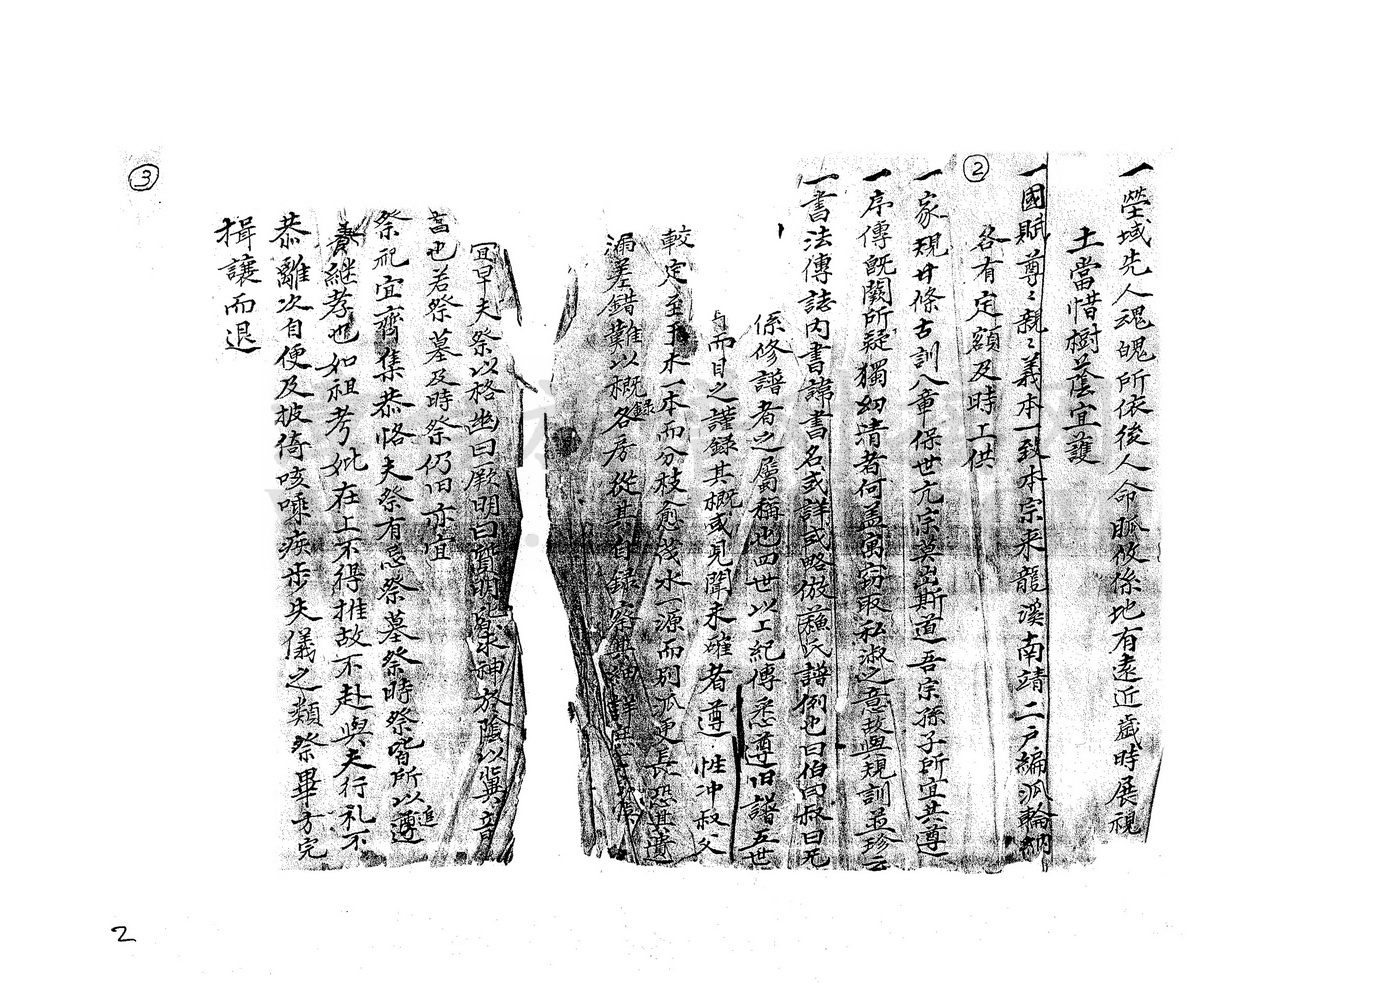 一塋域先人魂魄所依後人命脈攸係地有遠近歲時展視
土當惜樹蔭宜護
一國賦尊〻親〻義本一致本宗來龍溪南靖二戶編派輪納
各有定額及時上供
②
一家規廿條古訓八章保世亢宗莫出斯道吾宗孫子所宜共遵
一序傳既闕所疑獨幼清者何蓋寓竊取私淑之意故與規訓並珍云
一書法傳誌內書諱書名或詳或略倣蘇氏譜例也曰伯曰叔曰兄
係修譜者之屬稱也四世以上紀傳悉遵旧譜五世
而目之謹錄其概或見聞未確者遵性冲叔父
較定至于木一本而分枝愈茂水一源而別派更長恐其遺
漏差錯難以概錄各房從其自錄察其紬詳無
宜早夫祭以格幽曰厥明曰質明寔求神於陰以冀音
當也若祭墓及時祭仍旧亦宜
祭祀宜齊集恭恪夫祭有忌祭墓祭時祭皆所以追遠
養繼孝也如祖考妣在上不得推故不赴與夫行礼不
恭離次自便及披倚咳唾疾步失儀之類祭畢方完
揖讓而退
③
2